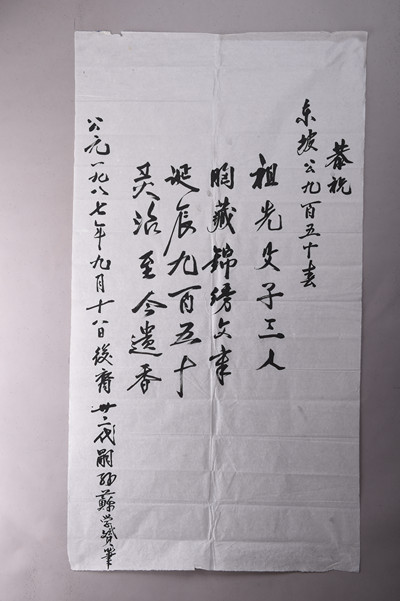 恭祝
东坡公九百五十
祖先父子三人
胸藏錦绣文章
诞辰九百五十
至今遗香
公元一九八七年九月十八日後裔二代嗣孙蘇筆